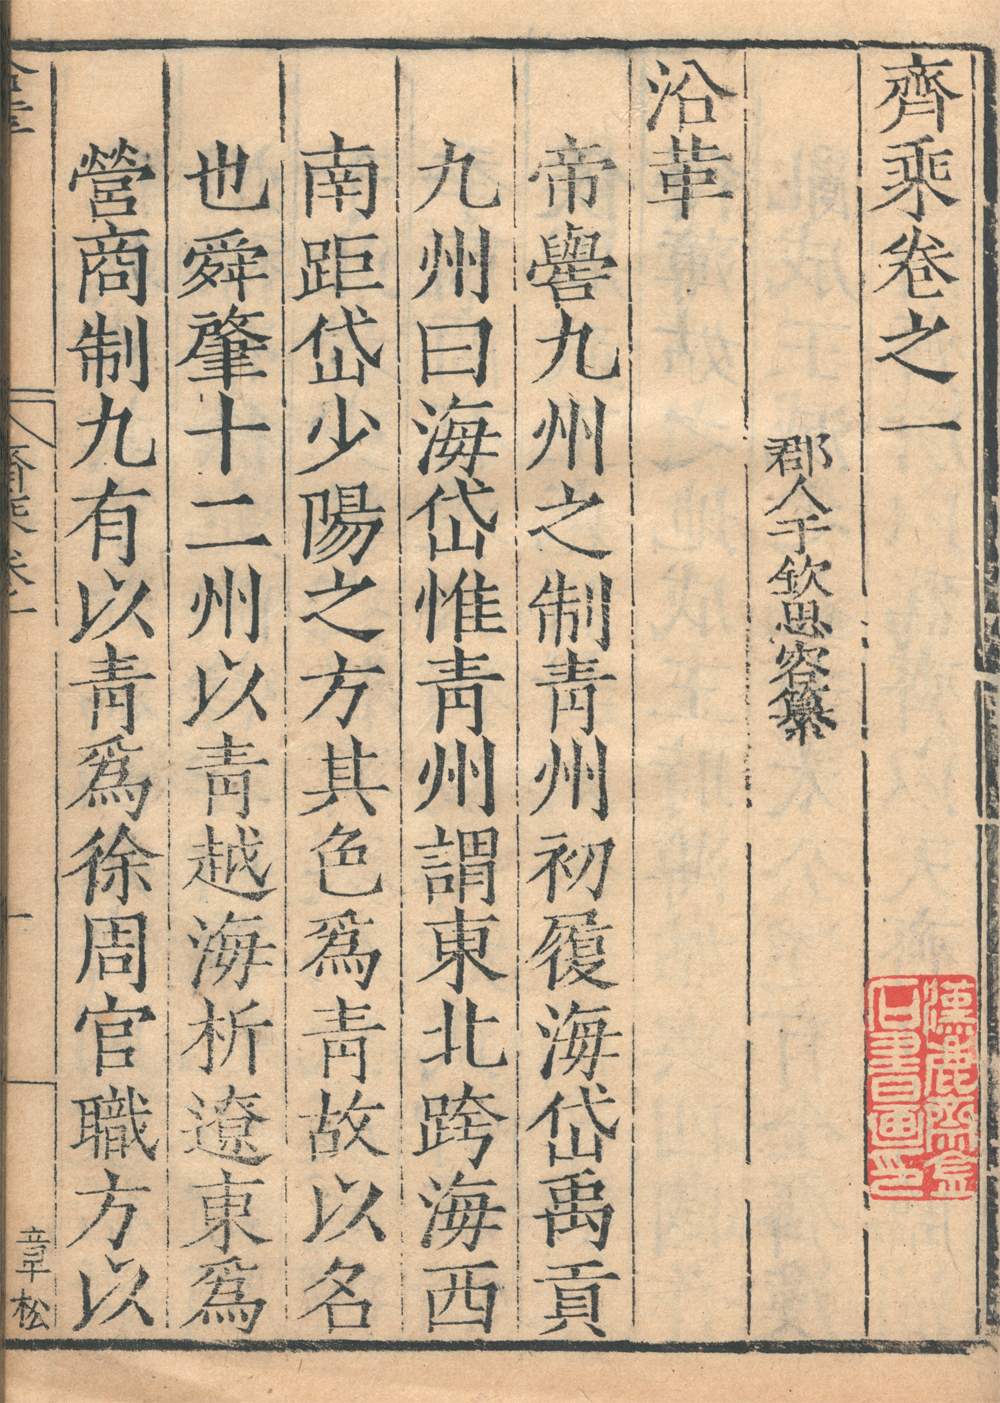 齊乘卷之一
郡人于欽思容纂
沿革
帝嚳九州之制青州初履海岱禹貢
九州曰海岱惟青州謂東北跨海西
南距岱少陽之方其色爲青故以名
也舜肇十二州以青越海析遼東爲
營商制九有以青爲徐周官職方以
齊乘卷一
一
章松